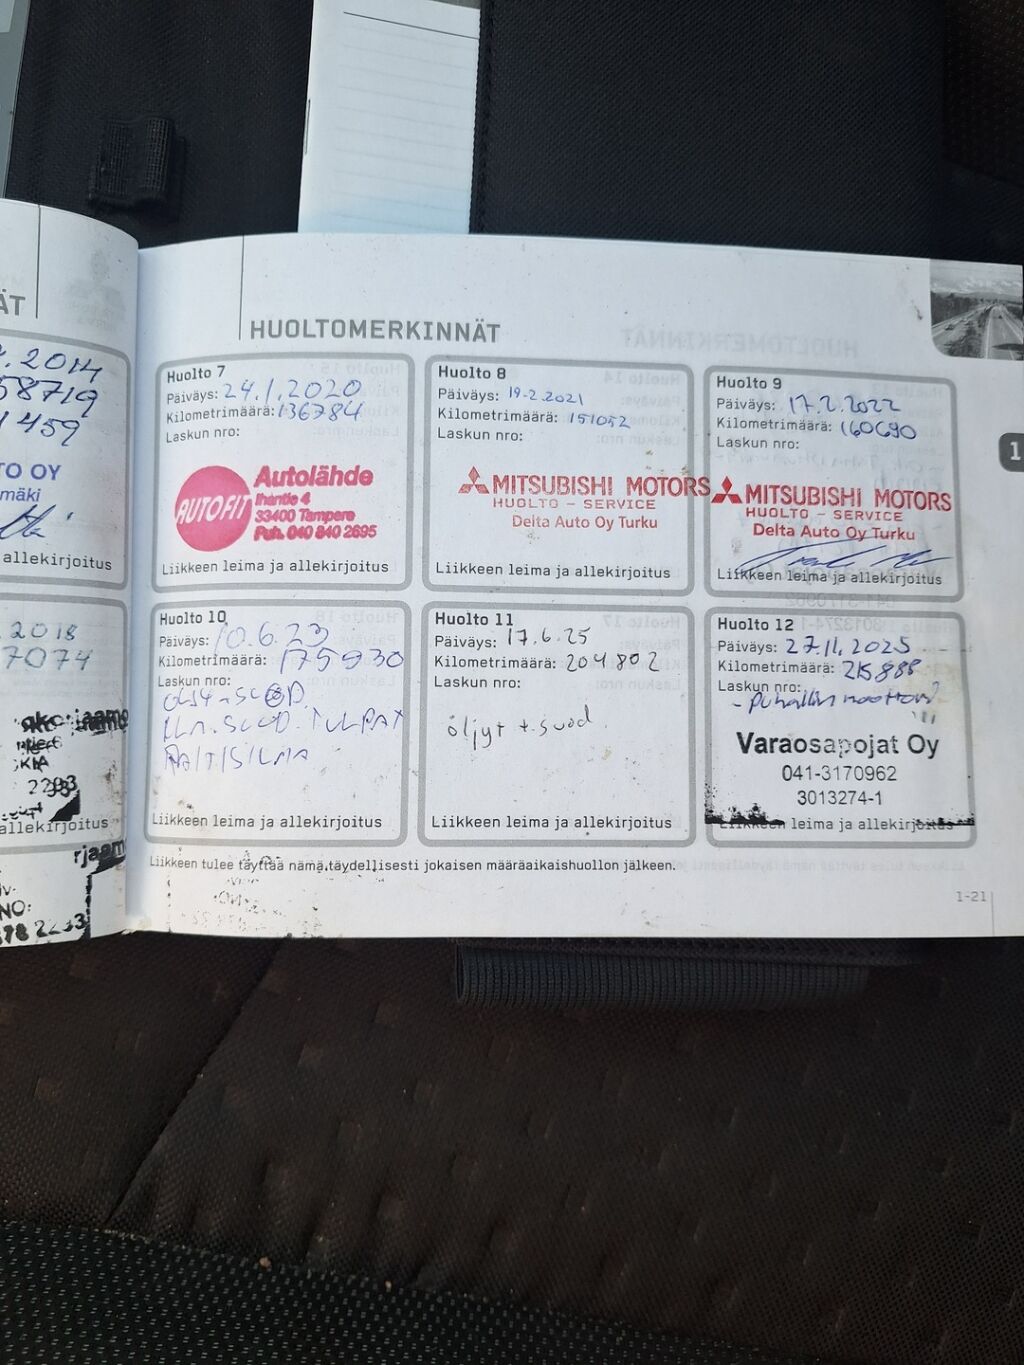 ÄT
.2014
58719
1459
TO OY
mäki
allekirjoitus
.2018
7074
2293
allekirjoitus
NO:
HUOLTOMERKINNÄT
Huolto 7
Päiväys: 24.1.2020
Kilometrimäärä: 136784
Laskun nro:
AUTOFIT
Autolähde
Ihantie 4
33400 Tampere
Puh. 040 840 2695
Liikkeen leima ja allekirjoitus
Huolto 8
Päiväys: 19.2.2021
Kilometrimäärä: 151052
Laskun nro:
MITSUBISHI MOTORS
HUOLTO - SERVICE
Delta Auto Oy Turku
Liikkeen leima ja allekirjoitus
Huolto 9
Päiväys: 17.2.2022
Kilometrimäärä: 160690
Laskun nro:
MITSUBISHI MOTORS
HUOLTO - SERVICE
Delta Auto Oy Turku
Liikkeen leima ja allekirjoitus
1
Huolto 10
Päiväys: 10.6.23
Kilometrimäärä: 175930
Laskun nro:
ILM.SUOD.TULPAT
Liikkeen leima ja allekirjoitus
Huolto 11
Päiväys: 17.6.25
Kilometrimäärä: 204802
Laskun nro:
öljyt + suod.
Liikkeen leima ja allekirjoitus
Huolto 12
Päiväys: 27.11.2025
Kilometrimäärä: 215888
Laskun nro:
Varaosapojat Oy
041-3170962
3013274-1
Liikkeen leima ja allekirjoitus
Liikkeen tulee täyttää nämä täydellisesti jokaisen määräaikaishuollon jälkeen.
1-21